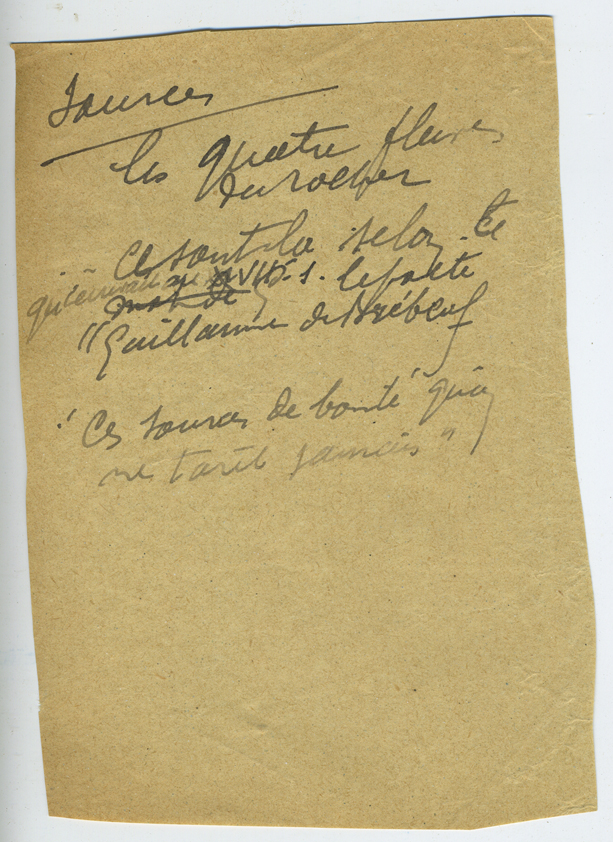 Sources
les quatre fleuves
du rocher
ce sont là selon ce
qu'écrivait au XVIIe s. le poète
mot de
"Guillaume de Brébeuf
"Ces sources de bonté qu'on
ne tarit jamais"